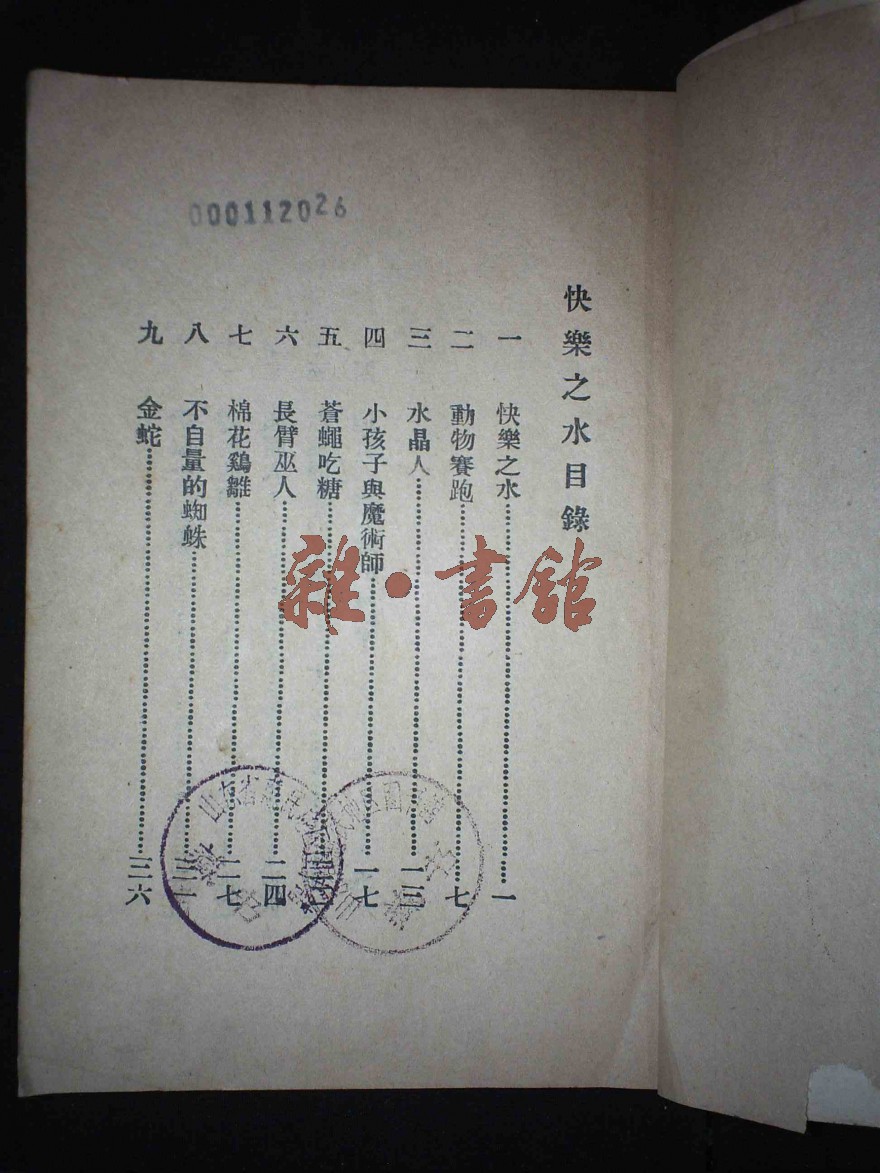 000112026
快樂之水目錄
一 快樂之水 一
二 動物賽跑 七
三 水晶人 一三
四 小孩子與魔術師 一七
五 蒼蠅吃糖
六 長臂巫人 二四
七 棉花鷄雛 二七
八 不自量的蜘蛛
九 金蛇 三六
雜·書館